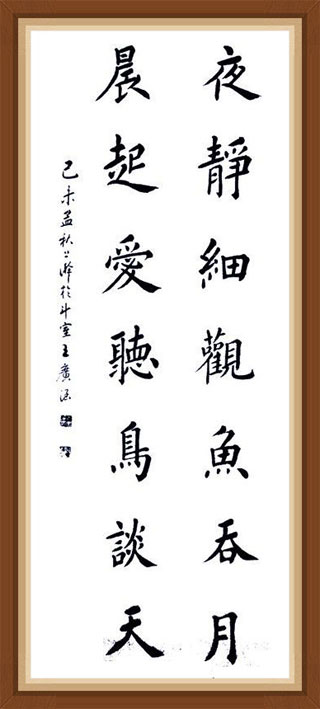 夜靜細觀魚吞月
晨起愛聽鳥談天
己未孟秋 於斗室王廣